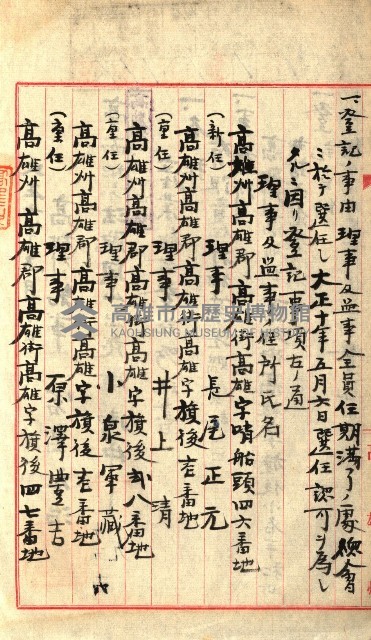 一、登記事由 理事及監事全員任期満了ノ處總會
ニ於テ選任シ大正十年五月六日選任認可ヲ為シ
タルニ因リ登記事項左ノ通
理事及監事ノ住所氏名
高雄州高雄郡高雄街高雄字哨船頭四六番地
(新任) 理事 長尾正元
高雄州高雄郡高雄街高雄字旗後 番地
(重任) 理事 井上 清
高雄州高雄郡高雄街高雄字旗後 八番地
(重任) 理事 小泉軍藏
高雄州高雄郡高雄街高雄字旗後 番地
(重任) 理事 原澤豊吉
高雄州高雄郡高雄街高雄字旗後四七番地
高雄市立歷史博物館
KAOHSIUNG MUSEUM OF HISTORY